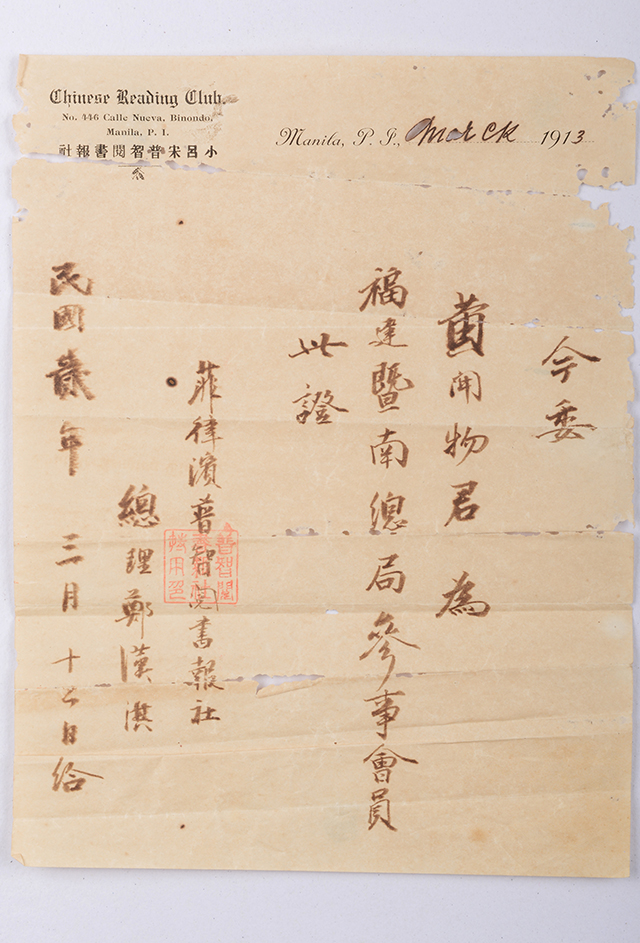 Chinese Reading Club.
No. 446 Calle Nueva, Binondo,
Manila, P. I.
小呂宋普智閱書報社
Manila, P. I., March 1913
今委
黃開物君為
福建暨南總局參事會員
此證
菲律濱普智閱書報社
總理鄭漢淇
民國貳年三月十六日給
普智閱書報社